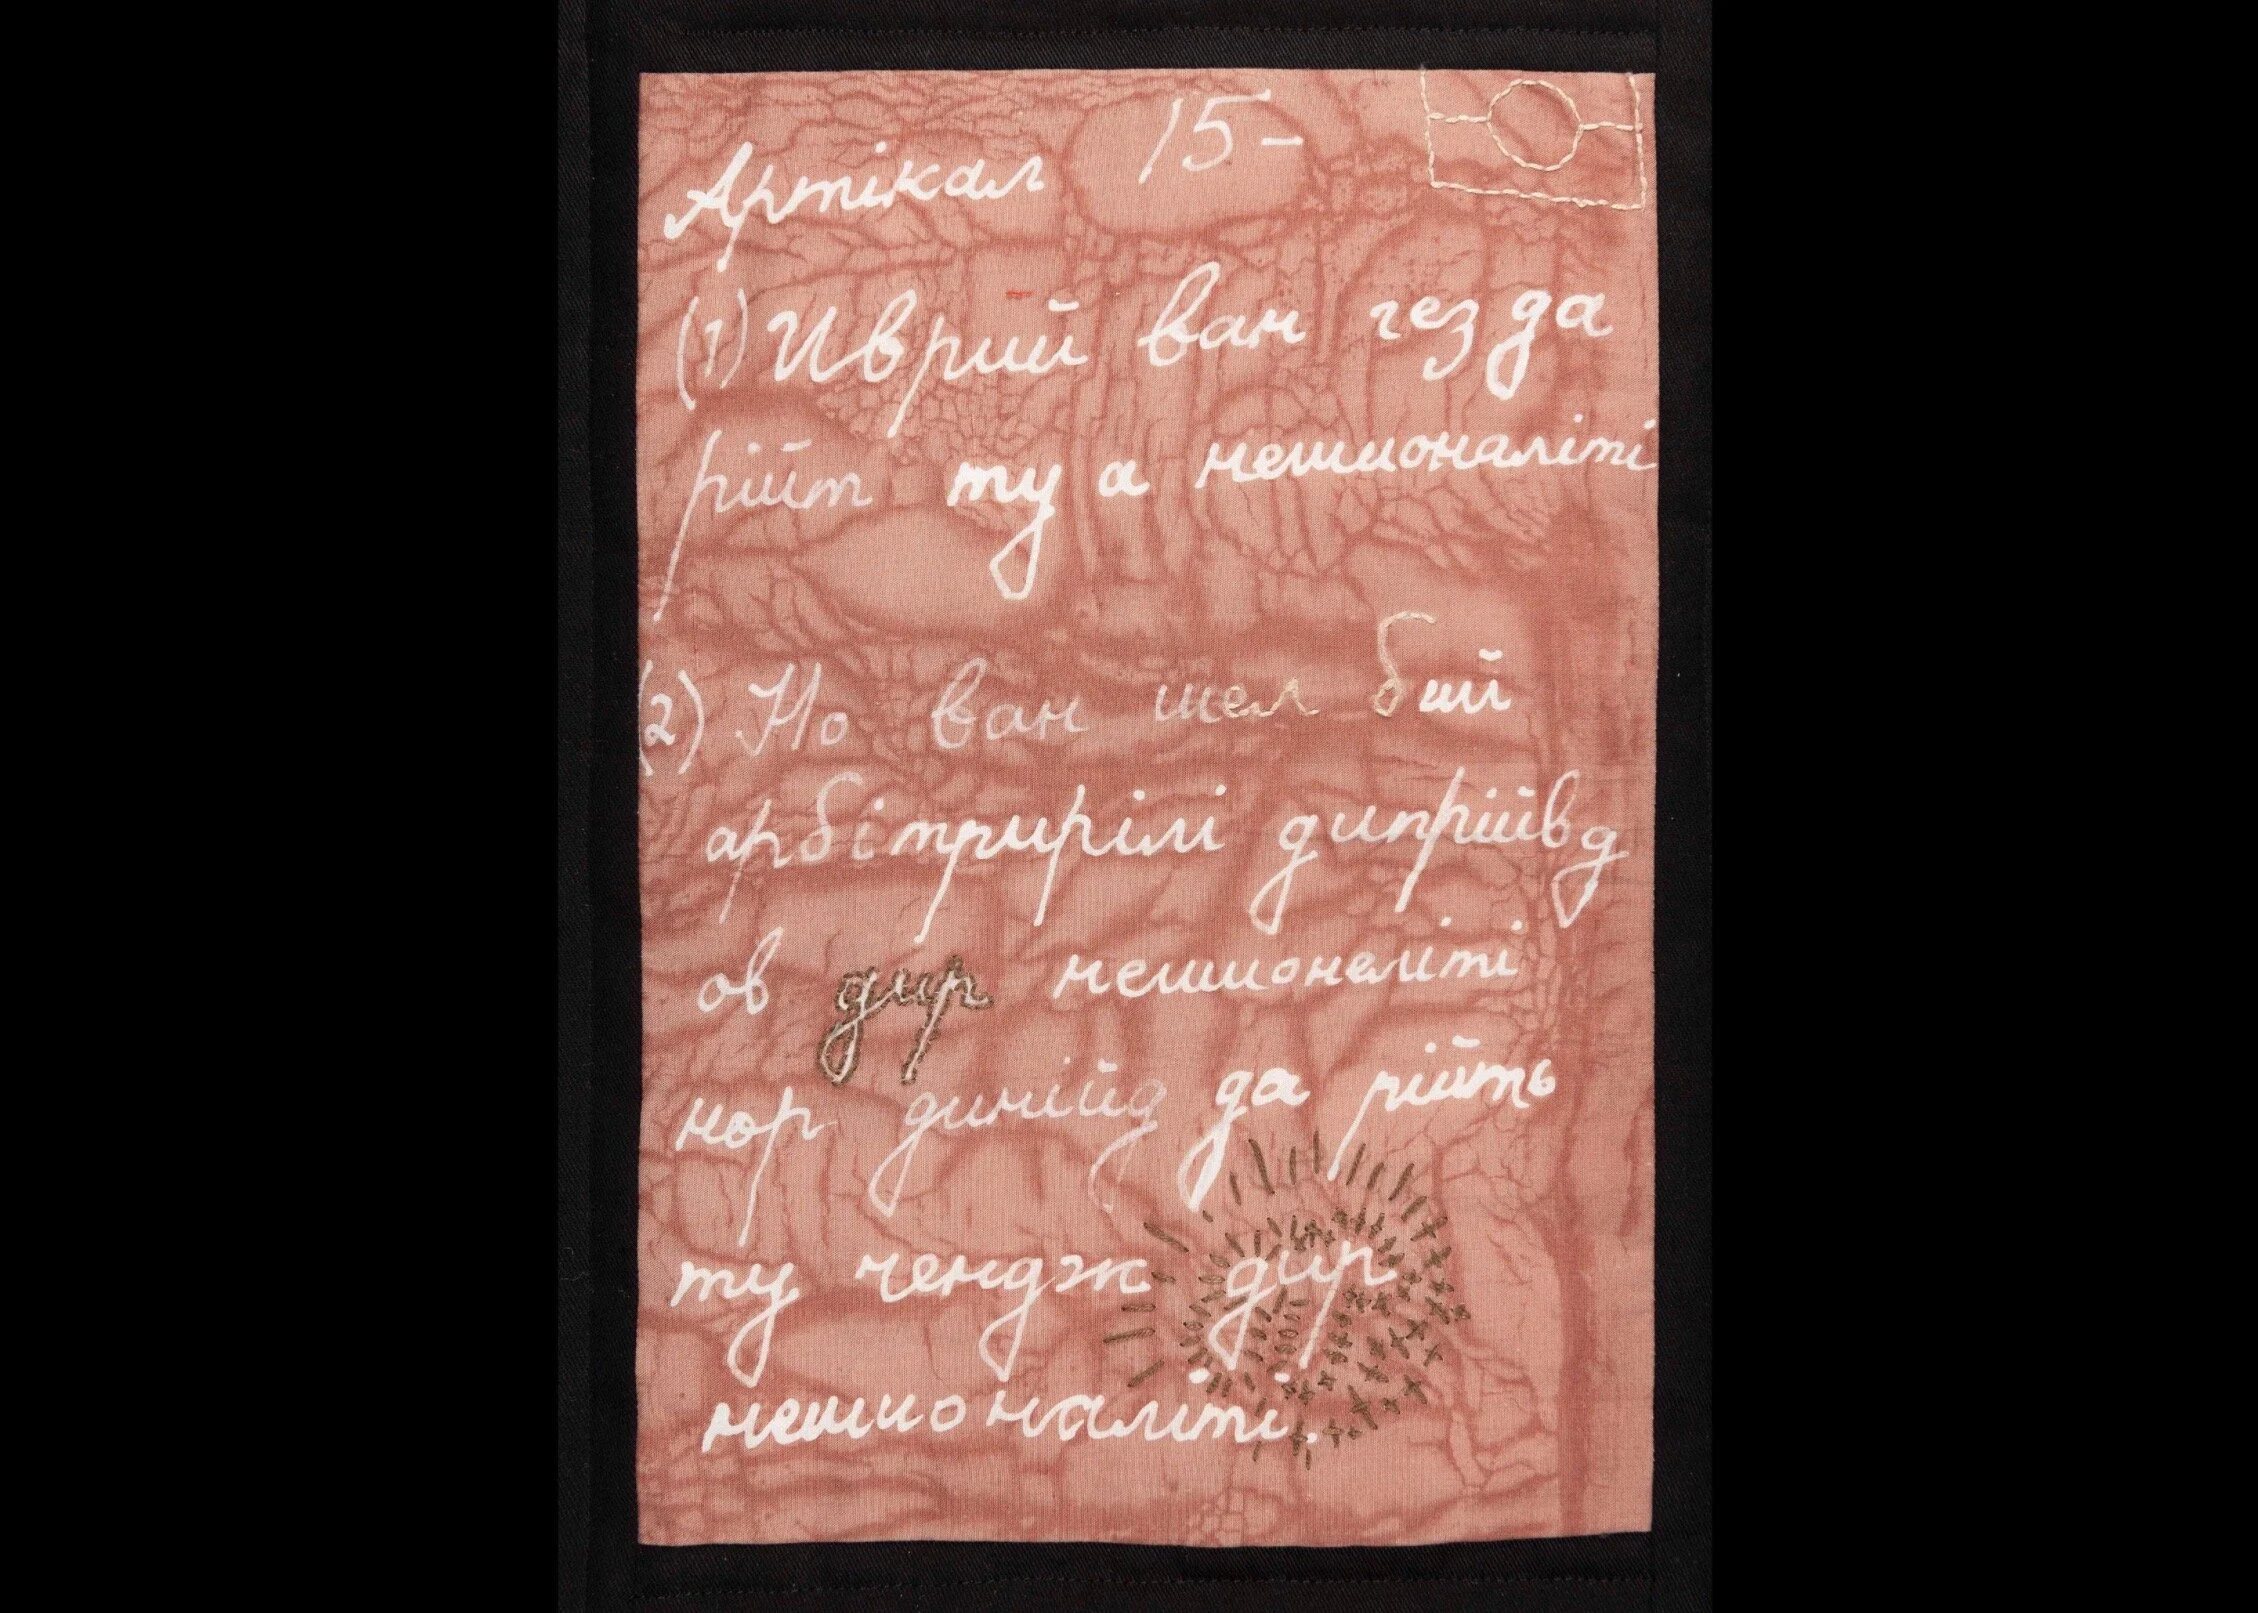 Артікал 15-
(1) Иврий ван гез да
рійт ту а нешионаліті
(2) Но ван шел бий
арбітрирілі диприйвд
ов дир нешионеліті
нор динійд да рійть
ту чендж дир
нешионаліті.